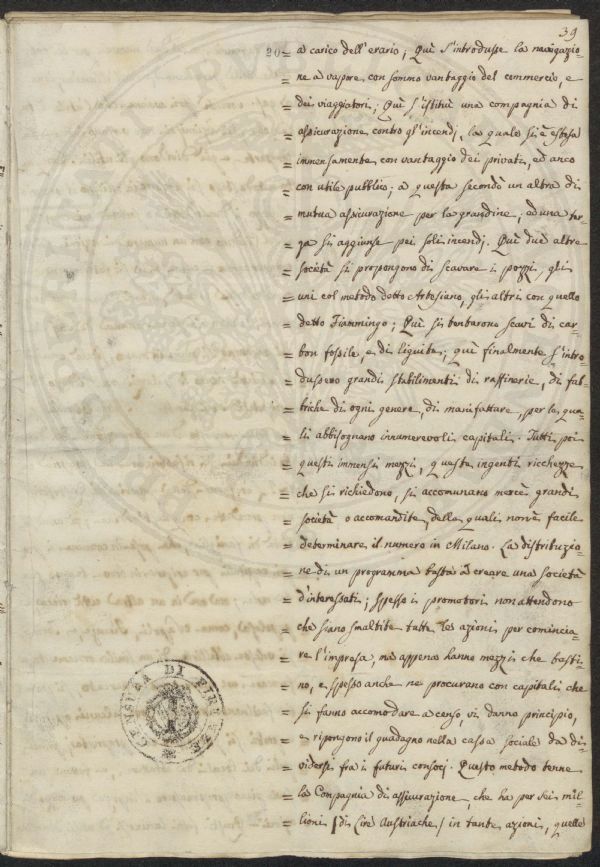 39
20 = a carico dell'erario; Quì s'introdusse la navigazio-
= ne a vapore con sommo vantaggio del commercio, e
= dei viaggiatori; Quì s'istituì una compagnia di
= assicurazione contro gl'incendj, la quale si è estesa
= immensamente con vantaggio dei privati, ed anco
= con utile pubblico; a questa secondò un altra di
= mutua assicurazione per la grandine, ed una ter-
= za si aggiunse pei soli incendj. Quì due altre
= società si propongono di scavare i pozzi, gli
= uni col metodo detto Artesiano, gli altri con quello
= detto Fiammingo; Quì si tentarono scavi di car-
= bon fossile, e di ligniti; quì finalmente s'intro-
= dussero grandi stabilimenti di raffinerie, di fab-
= briche di ogni genere, di manifatture, per le qua-
= li abbisognano innumerevoli capitali. Tutti poi
= questi immensi mezzi, queste ingenti ricchezze
= che si richiedono, si accomunano mercè grandi
= società o accomandite, delle quali non è facile
= determinare il numero in Milano. La distribuzio-
= ne di un programma basta a creare una società
= d'interessati; spesso i promotori non attendono
= che siano smaltite tutte le azioni per comincia-
= re l'impresa, ma appena hanno mezzi che basti-
= no, e spesso anche ne procurano con capitali che
= si fanno accomodare a censo, vi danno principio,
= e ripongono il guadagno nella cassa sociale da di-
= vidersi fra i futuri consocj. Questo metodo tenne
= la Compagnia di assicurazione, che ha per sei mil-
= lioni /di Lire Austriache/ in tante azioni, quelle
CENSURA DI FIRENZE